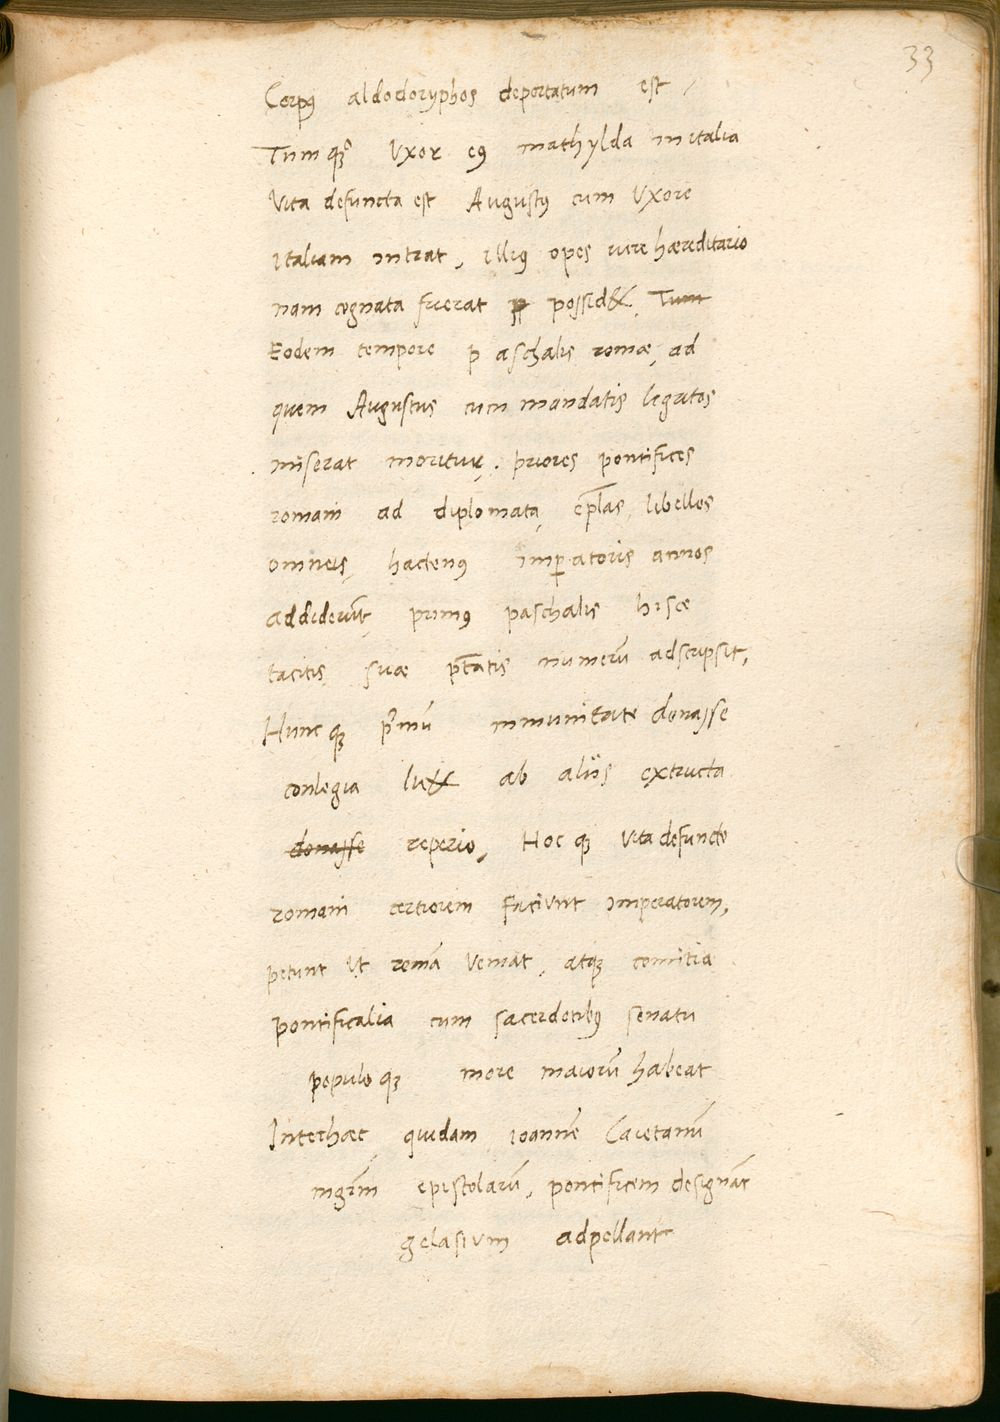 33
Corpꝰ aldodoryphos deportatum est
Tumqꝫ Vxor eꝰ mathylda in italia
Vita defuncta est Augustꝰ cum Vxore
italiam intrat, illiꝰ opes iure hæreditario
nam cognata fuerat possid&. Tum
Eodem tempore paschalis romæ, ad
quem Augustus cum mandatis legatos
miserat moritur. priores pontifices
romani ad diplomata, ep̄las, libellos
omneis, hactenꝰ imꝑatoris annos
addiderūt, primꝰ paschalis hisce
tacitis, suæ ptātis numerū adscripsit,
Huncqꝫ pʳmū immunitate donasse
conlegia lu& ab aliis extructa
donasse reperio, Hocqꝫ Vita defuncto
romani certiorem faciunt imperatorem,
petunt Vt romā veniat, atqꝫ comitia
pontificalia cum sacerdotibꝰ senatu
populoqꝫ more maiorū habeat
Interhæc quidam ioannē Caietanū
mgr̄m epistolarū, pontificem designāt
gelasium adpellant